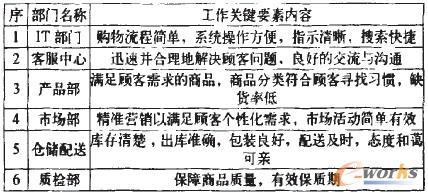 序 部门名称 工作关键要素内容
1 IT部门 购物流程简单，系统操作方便，指示清晰，搜索快捷
2 客服中心 迅速并合理地解决顾客问题，良好的交流与沟通
3 产品部 满足顾客需求的商品，商品分类符合顾客寻找习惯，缺
货率低
4 市场部 精准营销以满足顾客个性化需求，市场活动简单有效
5 仓储配送 库存清楚，出库准确，包装良好，配送及时，态度和蔼
可亲
6 质检部 保障商品质量，有效保质期
e-works